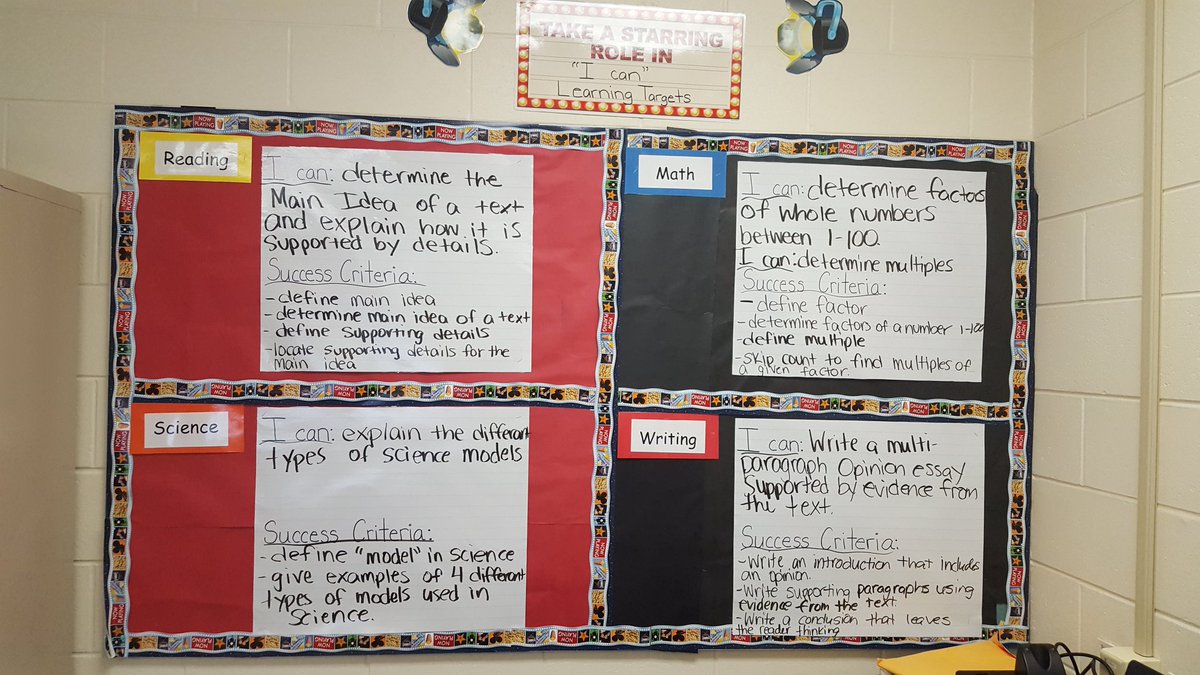 TAKE A STARRING
ROLE IN
"I can"
Learning Targets
Reading
I can: determine the
Main Idea of a text
and explain how it is
supported by details.
Success Criteria:
-define main idea
-determine main idea of a text
-define supporting details
-locate supporting details for the
main idea
Math
I can: determine factors
of whole numbers
between 1-100.
I can: determine multiples
Success Criteria:
-define factor
-determine factors of a number 1-100
-define multiple
-skip count to find multiples of
a given factor.
Science
I can: explain the different
types of science models
Success Criteria:
-define "model" in science
-give examples of 4 different
types of models used in
science.
Writing
I can: Write a multi-
paragraph Opinion essay
supported by evidence from
the text.
Success Criteria:
-Write an introduction that includes
an opinion.
-Write supporting paragraphs using
evidence from the text.
-Write a conclusion that leaves
the reader thinking.
NOW PLAYING